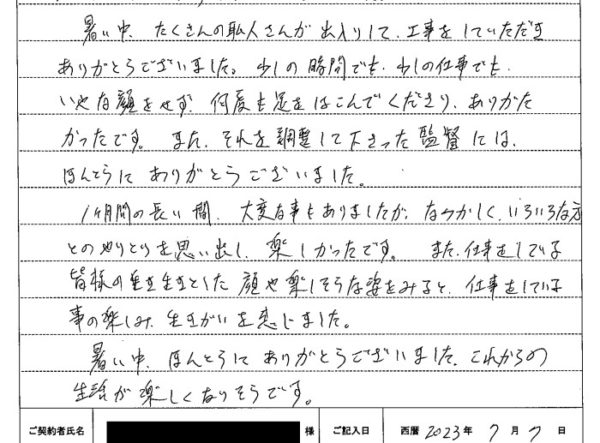 暑い中、たくさんの職人さんが出入りして、工事をしていただき
ありがとうございました。少しの時間でも、少しの仕事でも、
いやな顔をせず、何度も足をはこんでくださり、ありがた
かったです。また、それを調整して下さった監督には、
ほんとうにありがとうございました。
1ヶ月間の長い間、大変な事もありましたが、なつかしく、いろいろな方
とのやりとりを思い出し、楽しかったです。また、仕事をしている
皆様の生き生きとした顔や楽しそうな姿をみると、仕事をしている
事の楽しみ、生きがいを感じました。
暑い中、ほんとうにありがとうございました。これからの
生活が楽しくなりそうです。
ご契約者氏名 様 ご記入日 西暦 2023年 7月 7日